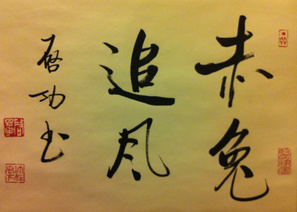 赤兔
追风
启功书